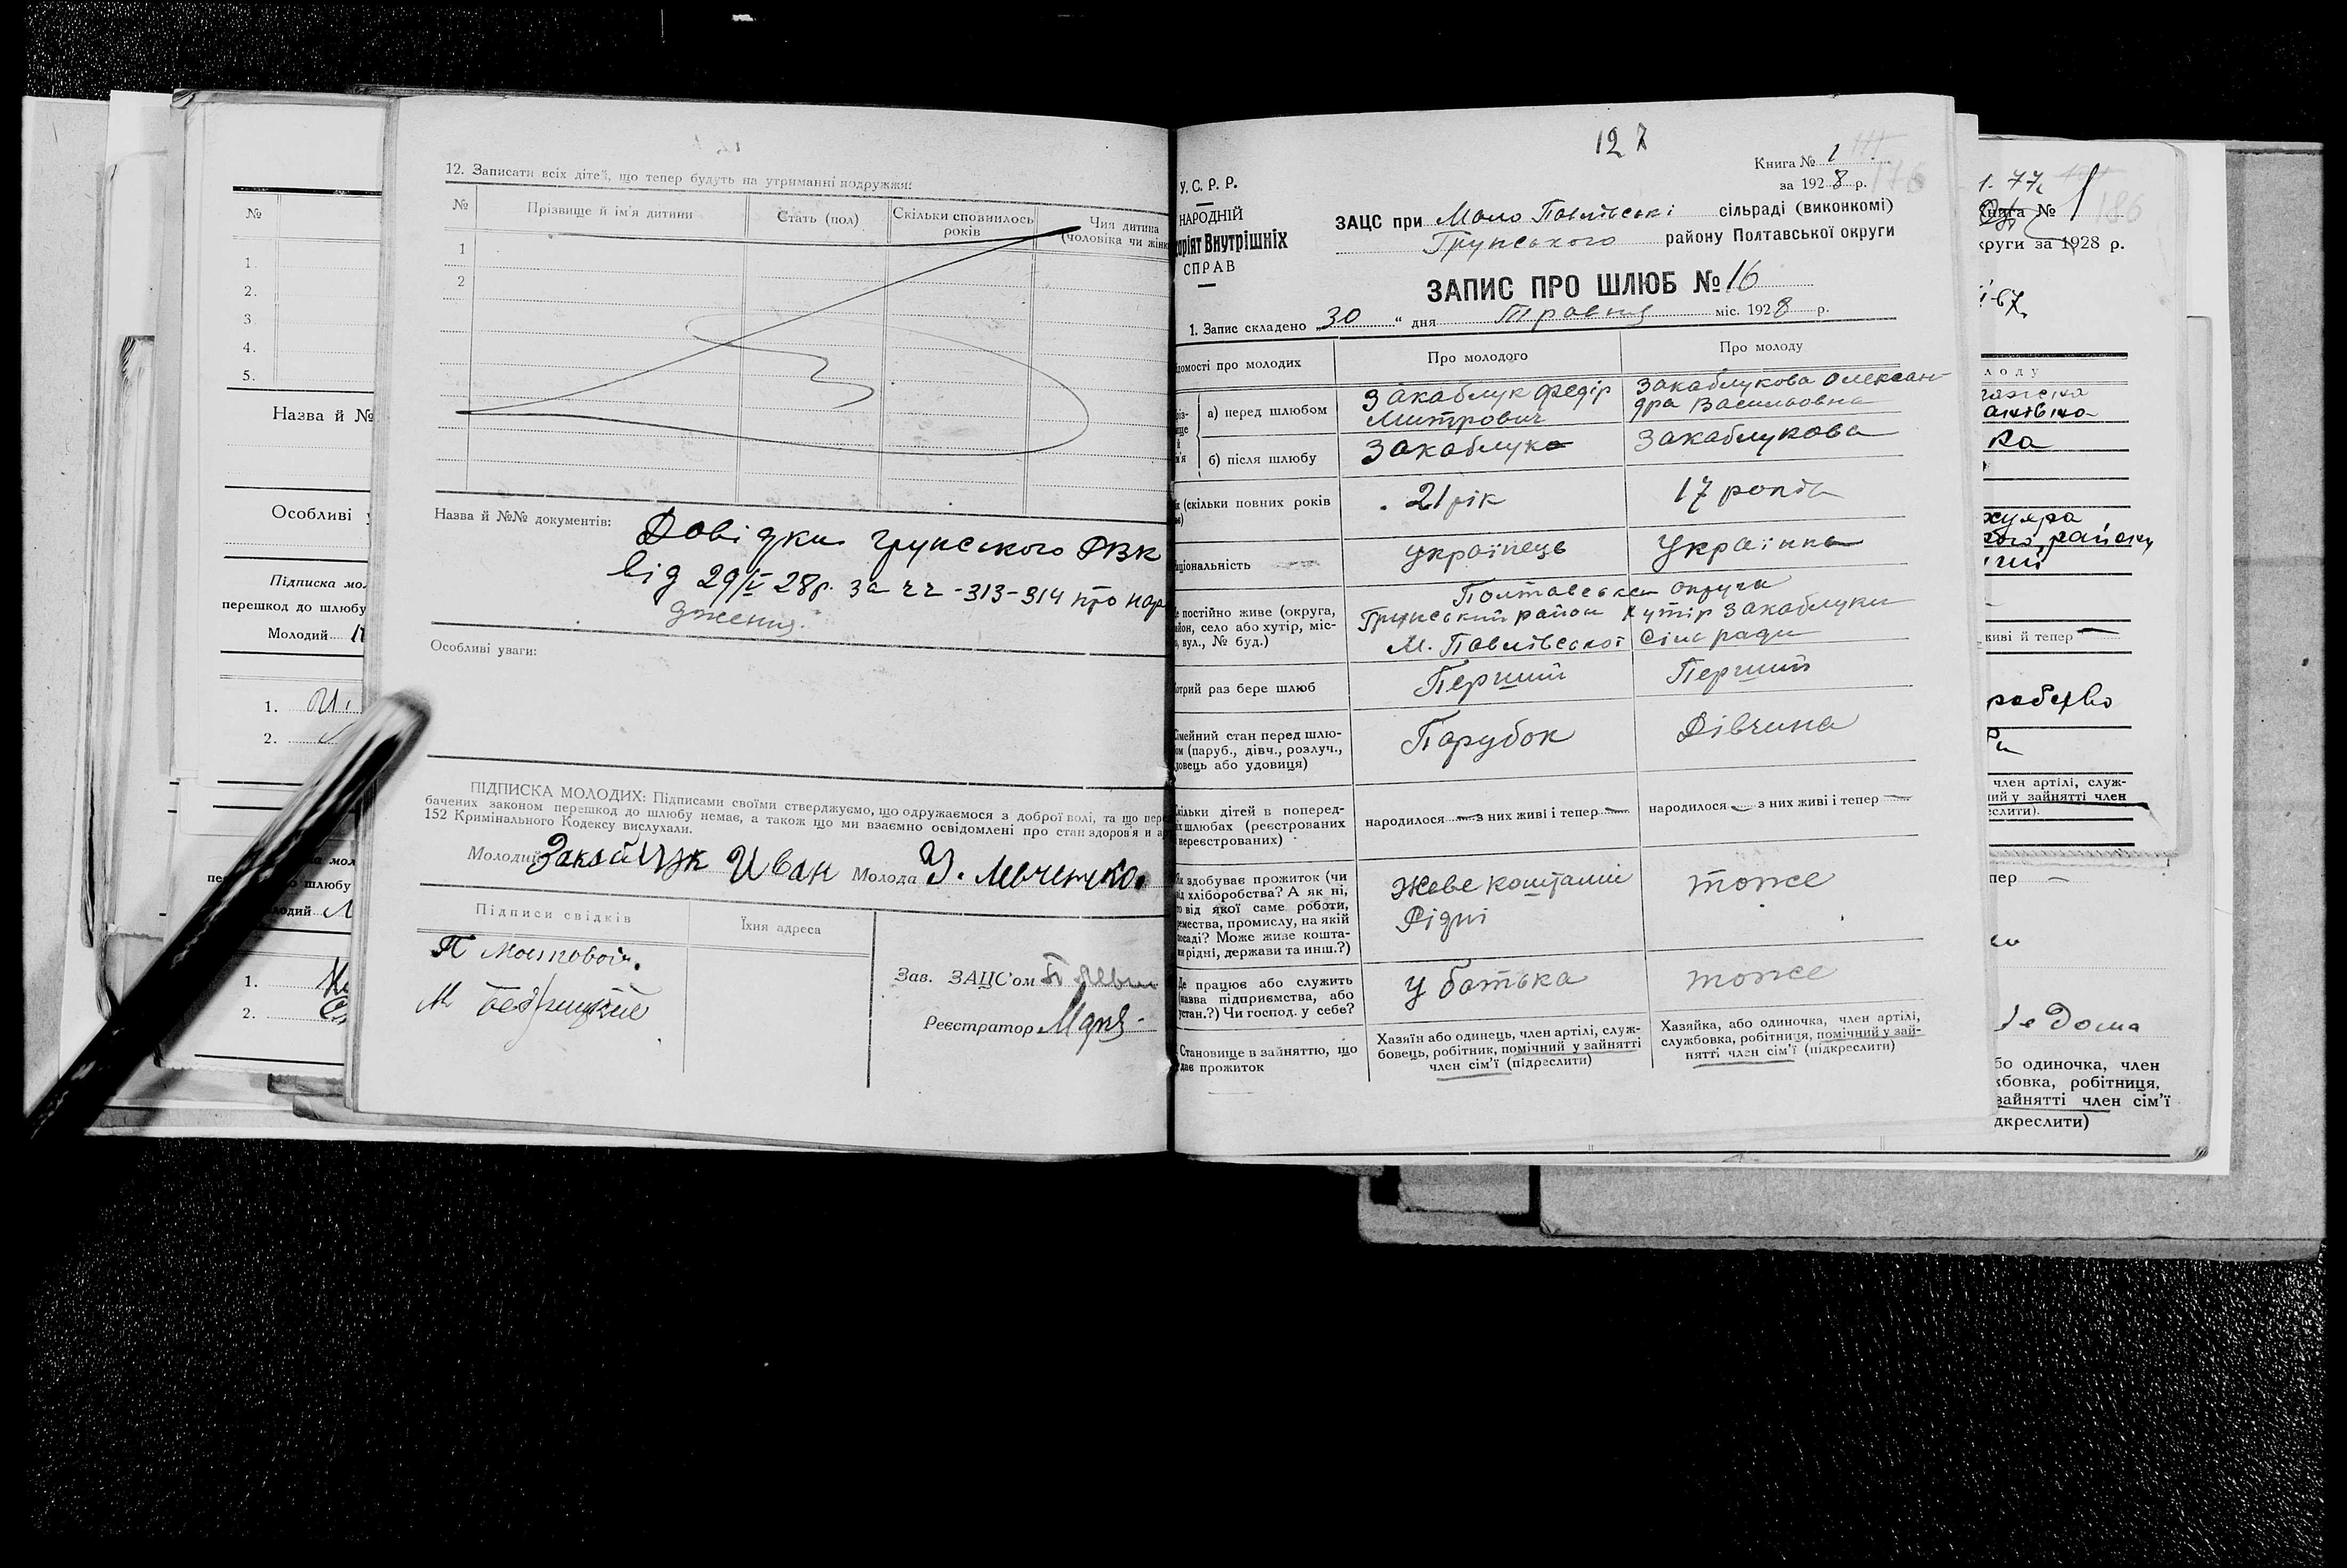 12. Записати всіх дітей, що тепер будуть на утриманні подружжя:
№ Прізвище й ім'я дитини Стать (пол) Скільки сповнилось років Чия дитина (чоловіка чи
1
2
Назва й №№ документів: Довідки Грунського РВК
від 29/V 28р. за чч - 313-314 про народження.
Особливі уваги:
ПІДПИСКА МОЛОДИХ: Підписами своїми стверджуємо, що одружаємося з доброї волі, та що
бачених законом перешкод до шлюбу немає, а також що ми взаємно освідомлені про стан здоров'я и
152 Кримінального Кодексу вислухали.
Молодий Закаблук Иван Молода
Підписи свідків Їхня адреса
П Мостовой.
М
Зав. ЗАЦС'ом
Реєстратор
№
1.
2.
3.
4.
5.
Назва й №
Особливі
Підписка
перешкод до шлюбу
Молодий
1.
2.
шлюбу
1.
2.
127
Книга № 1
за 1928 р.
176
У.С.Р.Р.
НАРОДНІЙ
Внутрішніх
СПРАВ
ЗАЦС при Мало Павлівські сільраді (виконкомі)
Грунського району Полтавської округи
ЗАПИС ПРО ШЛЮБ № 16
1. Запис складено „30" дня Травня міс. 1928 р.
про молодих Про молодого Про молоду
а) перед шлюбом Закаблук Федір Митрович Закаблукова Олександра Васильовна
б) після шлюбу Закаблук Закаблукова
(скільки повних років 21 рік 17 років
Українець Українка
постійно живе (округа, село або хутір, вул., № буд.)
Полтавська округа
Грунський район Хутір Закаблуки
М. Павлівської Сільради
раз бере шлюб Перший Перший
стан перед (паруб., дівч., розлуч., або удовиця) Парубок Дівчина
дітей в шлюбах (реєстрованих нереєстрованих) народилося — з них живі і тепер — народилося — з них живі і тепер —
здобуває прожиток (чи хліборобства? А як ні, від якої саме роботи, промислу, на якій Може живе рідні, держави та инш.?) Живе коштами Рідні тоже
працює або служить підприємства, або Чи господ. у себе? У батька тоже
Становище в зайняттю, що дає прожиток
Хазяїн або одинець, член артілі, службовець, робітник, помічний у зайнятті член сім'ї (підреслити)
Хазяйка, або одиночка, член артілі, службовка, робітниця, помічний у зайнятті член сім'ї (підкреслити)
Книга № 1
186
за 1928 р.
район
живі й тепер —
член артілі,
у зайнятті член
дома
одиночка, член
робітниця,
зайнятті член сім'ї